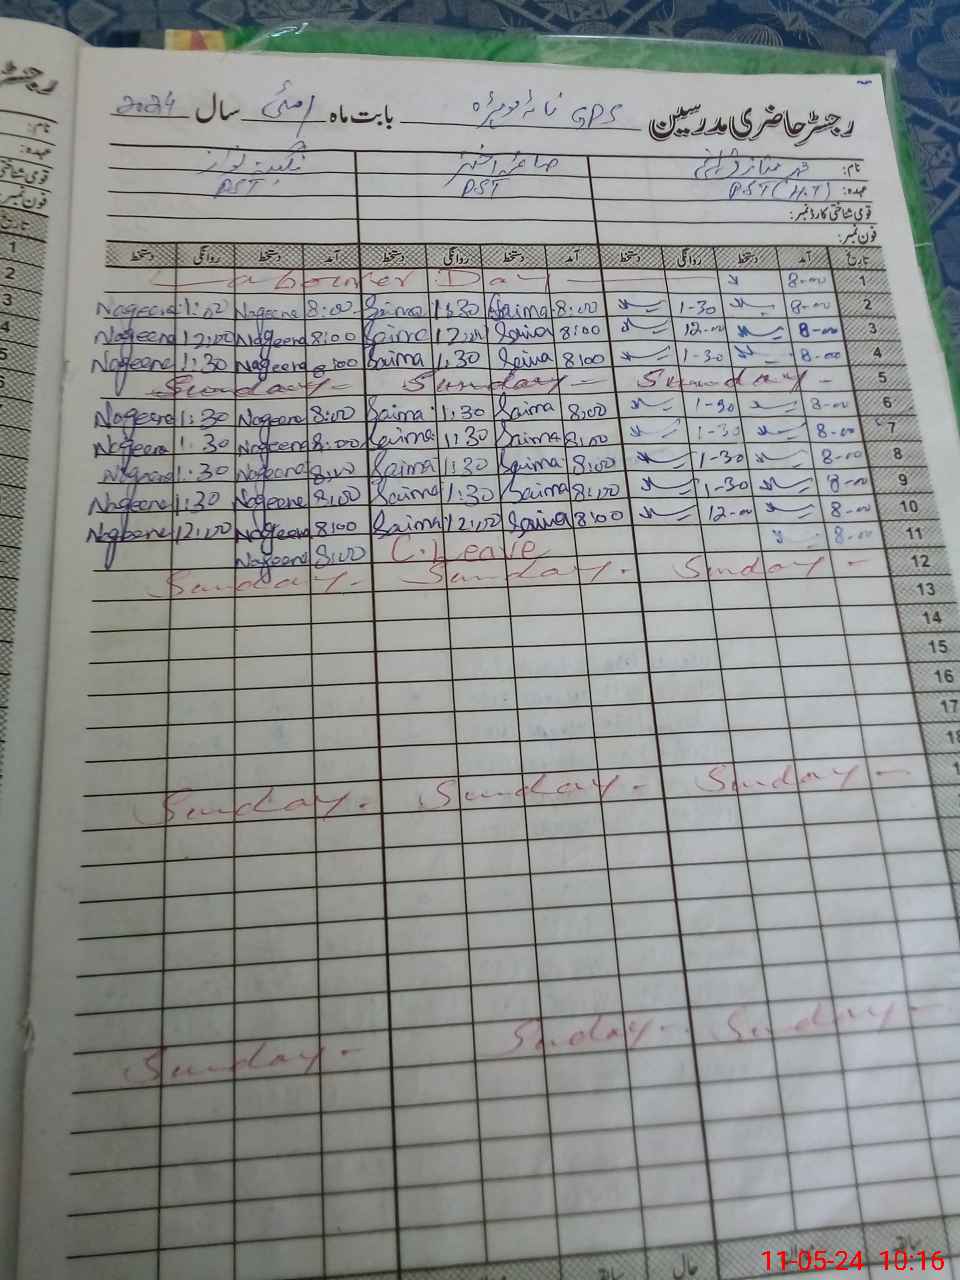 رجسٹر حاضری مدرسین GPS بابت ماہ مئی سال 2024
نام:
عہدہ: PST (H.T) PST PST
قومی شناختی کارڈ نمبر:
فون نمبر:
تاریخ آمد دستخط روانگی دستخط آمد دستخط روانگی دستخط آمد دستخط روانگی دستخط
1 8-00 Labourer Day
2 8-00 1-30 8:00 Saima 1:30 Saima 8:00 Nageena Nageena
3 8-00 12-00 8:00 Saima 12:00 Saima 8:00 Nageena 12:00 Nageena
4 8-00 1-30 8:00 Saima 1:30 Saima 8:00 Nageena 1:30 Nageena
5 Sunday - Sunday - Sunday -
6 8-00 1-30 8:00 Saima 1:30 Saima 8:00 Nageena 1:30 Nageena
7 8-00 1-30 8:00 Saima 1:30 Saima 8:00 Nageena 1:30 Nageena
8 8-00 1-30 8:00 Saima 1:30 Saima 8:00 Nageena 1:30 Nageena
9 8-00 1-30 8:00 Saima 1:30 Saima 8:00 Nageena 1:30 Nageena
10 8-00 12-00 8:00 Saima 12:00 Saima 8:00 Nageena 12:00 Nageena
11 8-00 C. Leave 8:00 Nageena
12 Sunday - Sunday - Sunday -
13
14
15
16
17
18
Sunday - Sunday - Sunday -
Sunday - Sunday - Sunday -
11-05-24 10:16